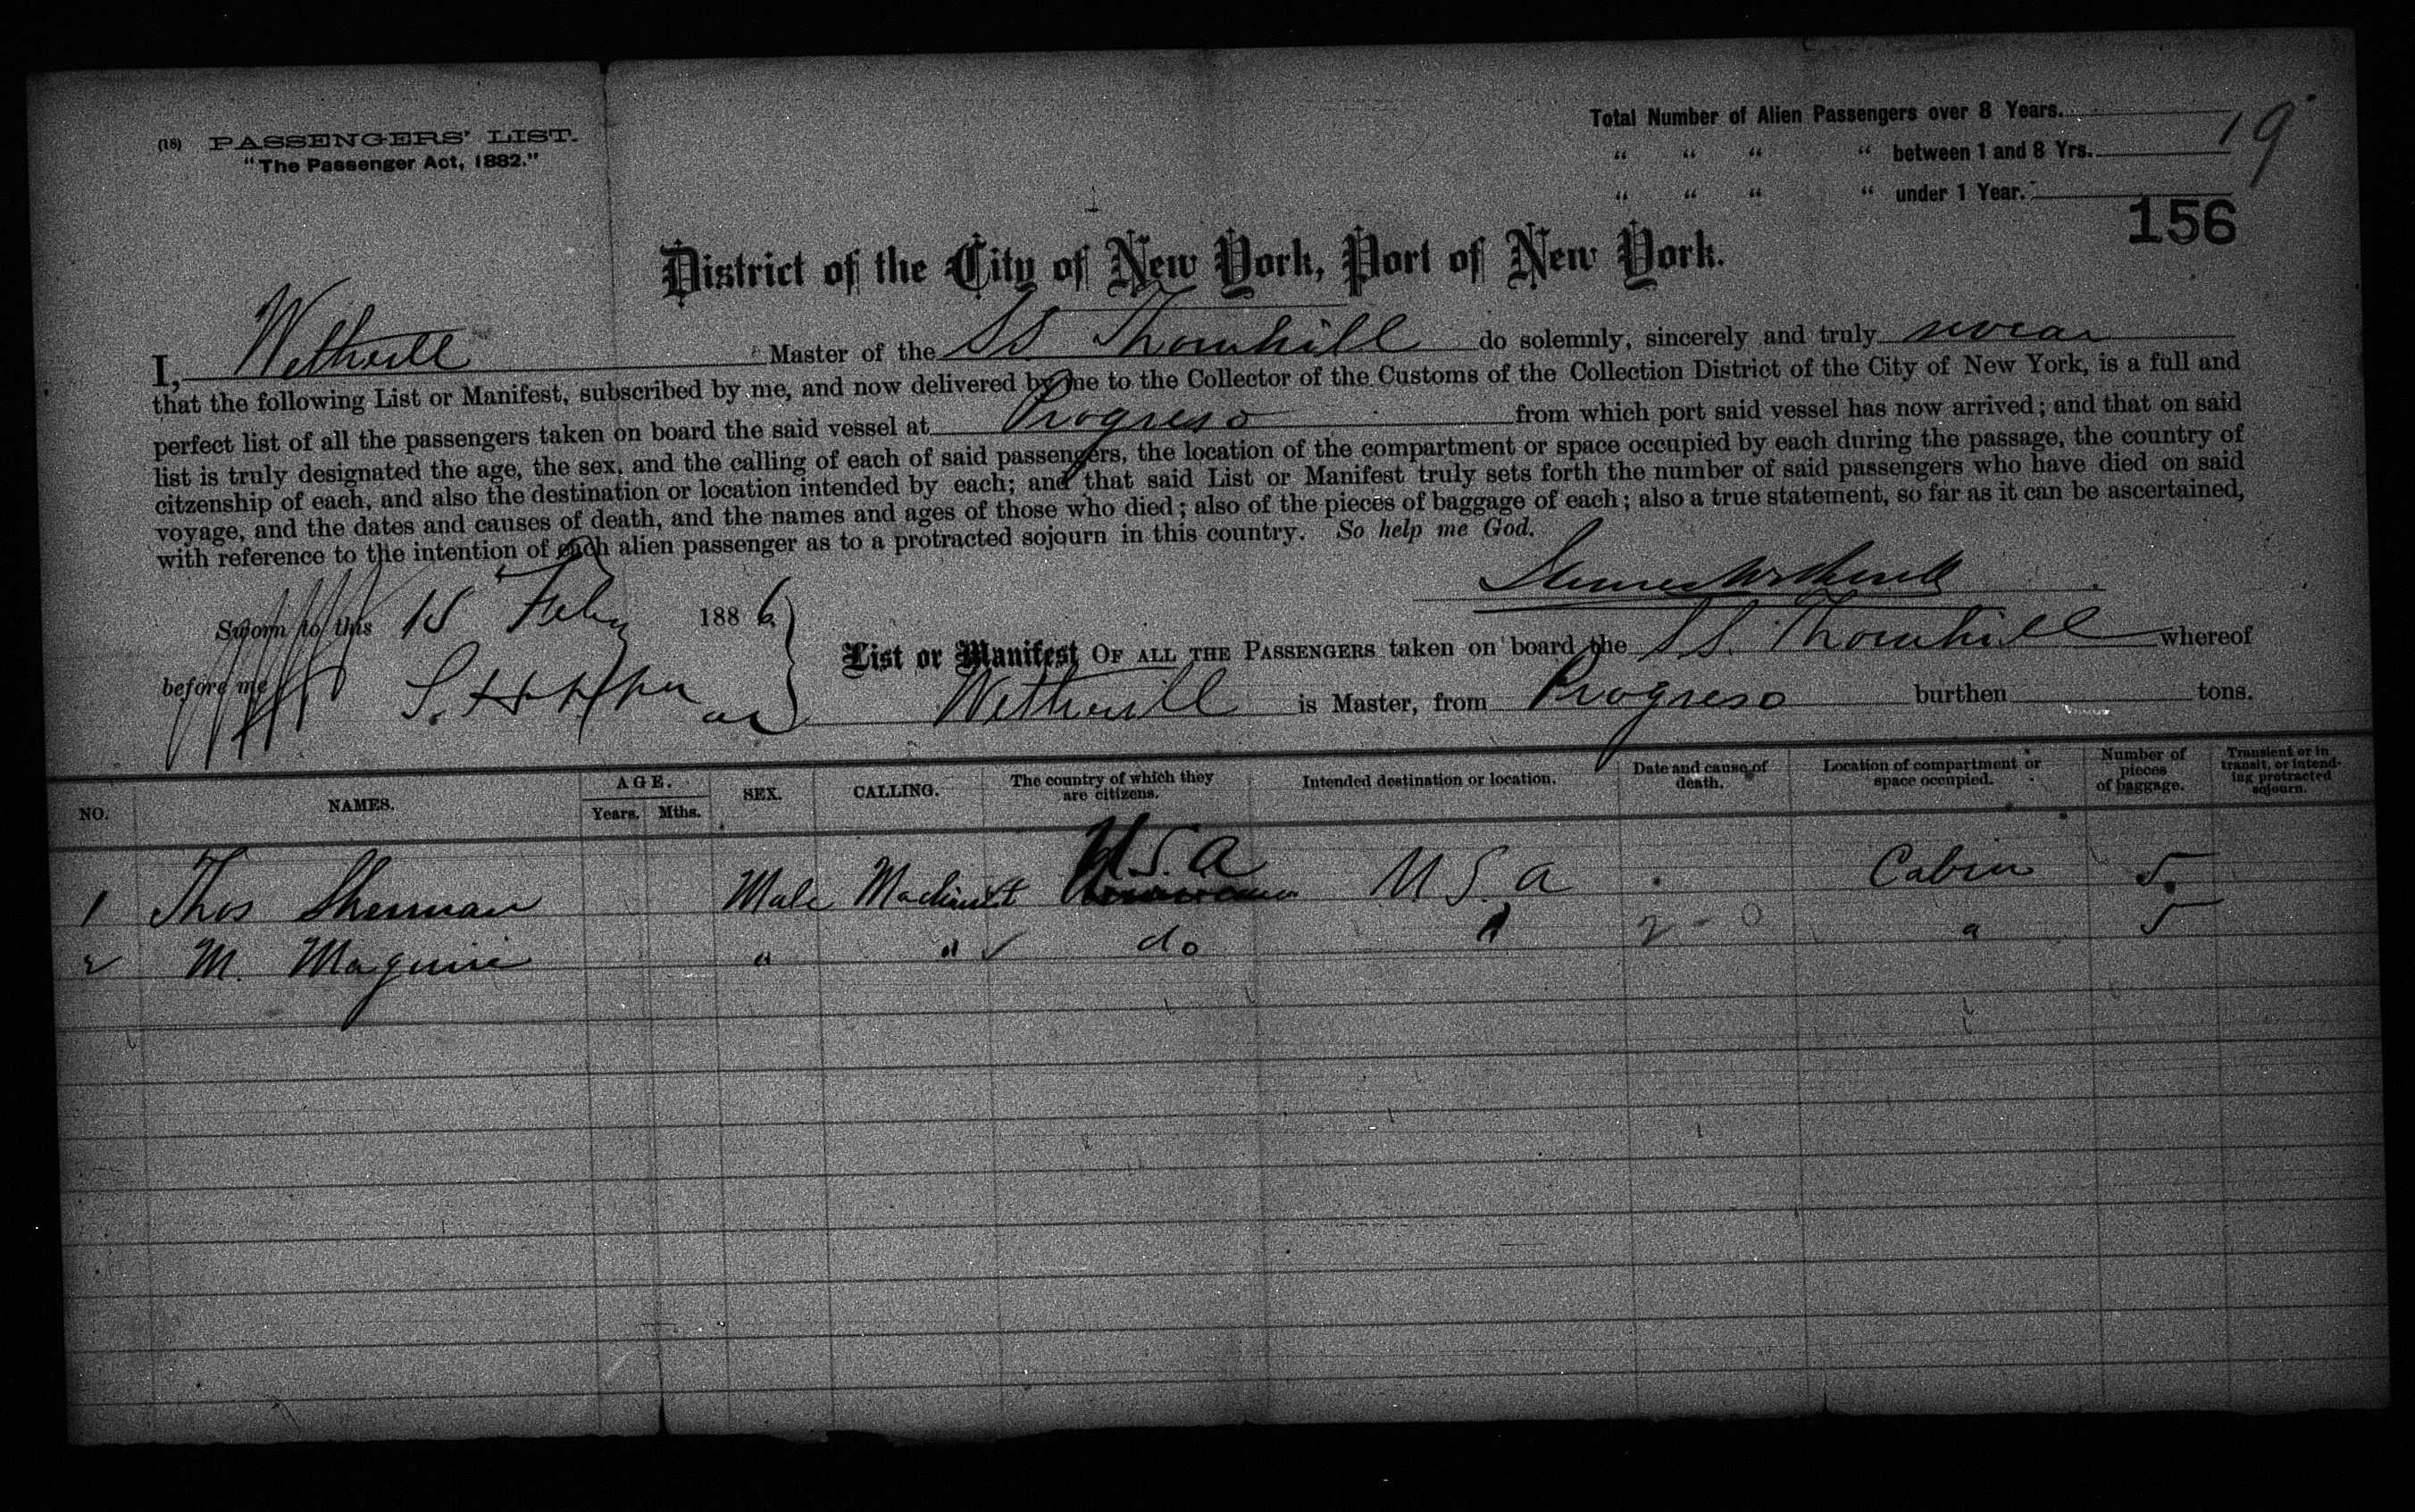 (18) PASSENGERS' LIST.
"The Passenger Act, 1882."
Total Number of Alien Passengers over 8 Years.
" " " " between 1 and 8 Yrs.
" " " " under 1 Year.
19
156
District of the City of New York, Port of New York.
I, Wetherill Master of the SS. Thornhill do solemnly, sincerely and truly swear
that the following List or Manifest, subscribed by me, and now delivered by me to the Collector of the Customs of the Collection District of the City of New York, is a full and
perfect list of all the passengers taken on board the said vessel at Progreso from which port said vessel has now arrived; and that on said
list is truly designated the age, the sex, and the calling of each of said passengers, the location of the compartment or space occupied by each during the passage, the country of
citzenship of each, and also the destination or location intended by each; and that said List or Manifest truly sets forth the number of said passengers who have died on said
voyage, and the dates and causes of death, and the names and ages of those who died; also of the pieces of baggage of each; also a true statement, so far as it can be ascertained,
with reference to the intention of each alien passenger as to a protracted sojourn in this country. So help me God.
Sworn to this 15 Feby 1886
before me
List or Manifest OF ALL THE PASSENGERS taken on board the SS. Thornhill whereof
Wetherill is Master, from Progreso burthen tons.
NO. NAMES. AGE. Years. Mths. SEX. CALLING. The country of which they are citizens. Intended destination or location. Date and cause of death. Location of compartment or space occupied. Number of pieces of baggage. Transient or in transit, or intending protracted sojourn.
1 Thos Sherman Male Machinist U.S.A U S. A Cabin 5.
2 M. Maguire " " ✓ do " 2 - 0 " 5